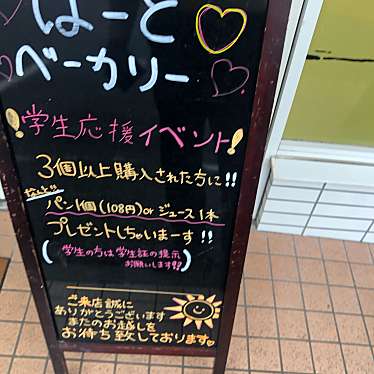 はーと
ベーカリー
学生応援イベント!
3個以上購入された方に!!
なんと!!
パン1個(108円)or ジュース1本
プレゼントしちゃいまーす!!
(学生の方は学生証の提示
お願いします!!)
ご来店誠に
ありがとうございます
またのお越しを
お待ち致しております。